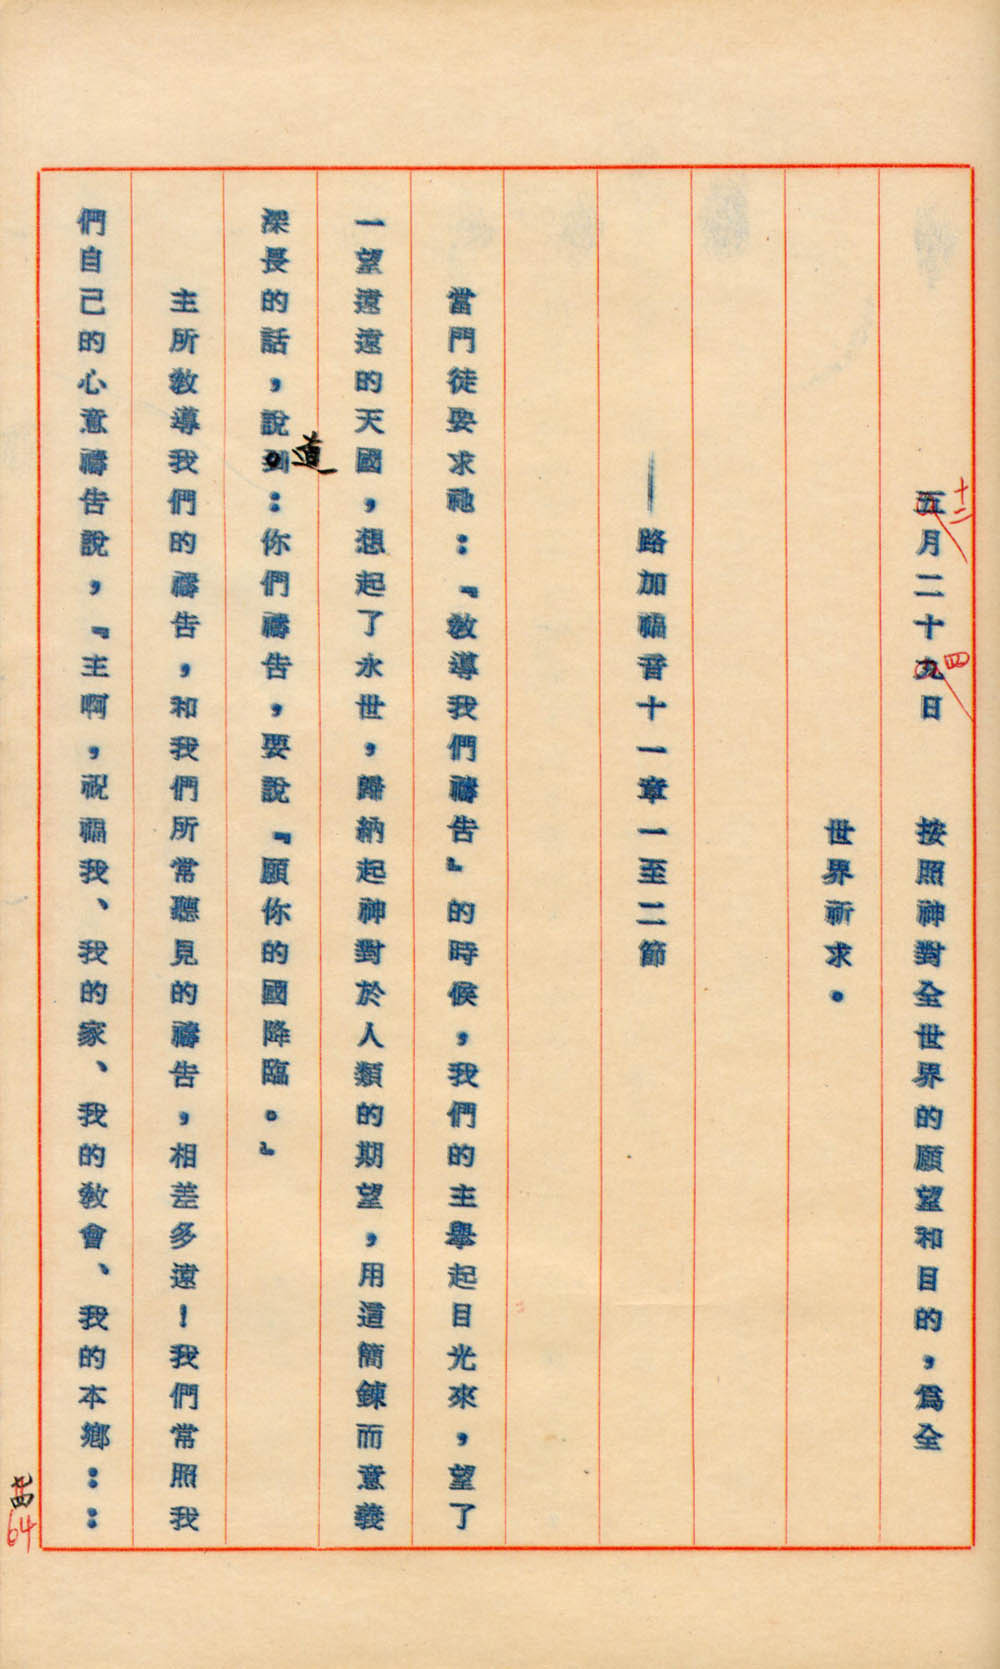 五月二十九日　按照神對全世界的願望和目的，為全
十二
四
世界祈求。
——路加福音十一章一至二節
當門徒要求祂：『教導我們禱告』的時候，我們的主舉起目光來，望了
一望遠遠的天國，想起了永世，歸納起神對於人類的期望，用這簡鍊而意義
深長的話，說到：你們禱告，要說『願你的國降臨。』
道
主所教導我們的禱告，和我們所常聽見的禱告，相差多遠！我們常照我
們自己的心意禱告說，『主啊，祝福我、我的家、我的教會、我的本鄉：：
64